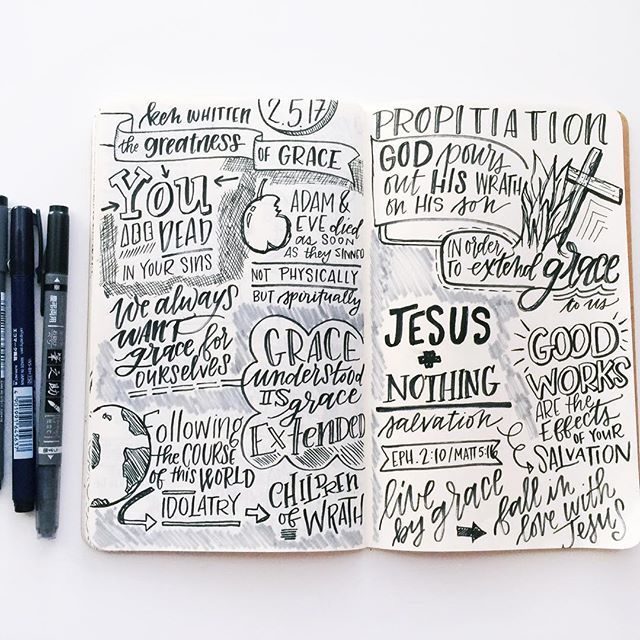 Ken WHITTEN
2.5.17
the greatness
OF GRACE
YOU
ARE DEAD
IN YOUR SINS
ADAM &
EVE died
as SOON
AS they SINNED
NOT PHYSICALLY
BUT spiritually
We always
WANT
grace for
OURSELVES
GRACE
understood
IS grace
Extended
Following
the COURSE
of this WORLD
IDOLATRY
CHILDREN
of WRATH
PROPITIATION
GOD pours
out HIS WRATH
on HIS son
IN order
to extend grace
to us
JESUS
+
NOTHING
salvation
EPH. 2:10/MATT 5:16
GOOD
WORKS
ARE the
Effects
OF YOUR
SALVATION
live grace
by GRACE
fall in
love with
Jesus
筆之助